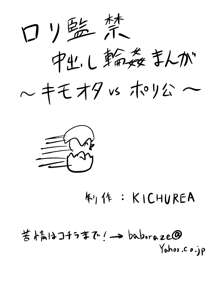 ロリ監禁
中出し輪姦まんが
～キモオタ vs ポリ公～
制作：KICHUREA
苦情はコチラまで！→ baboraze@
Yahoo.co.jp